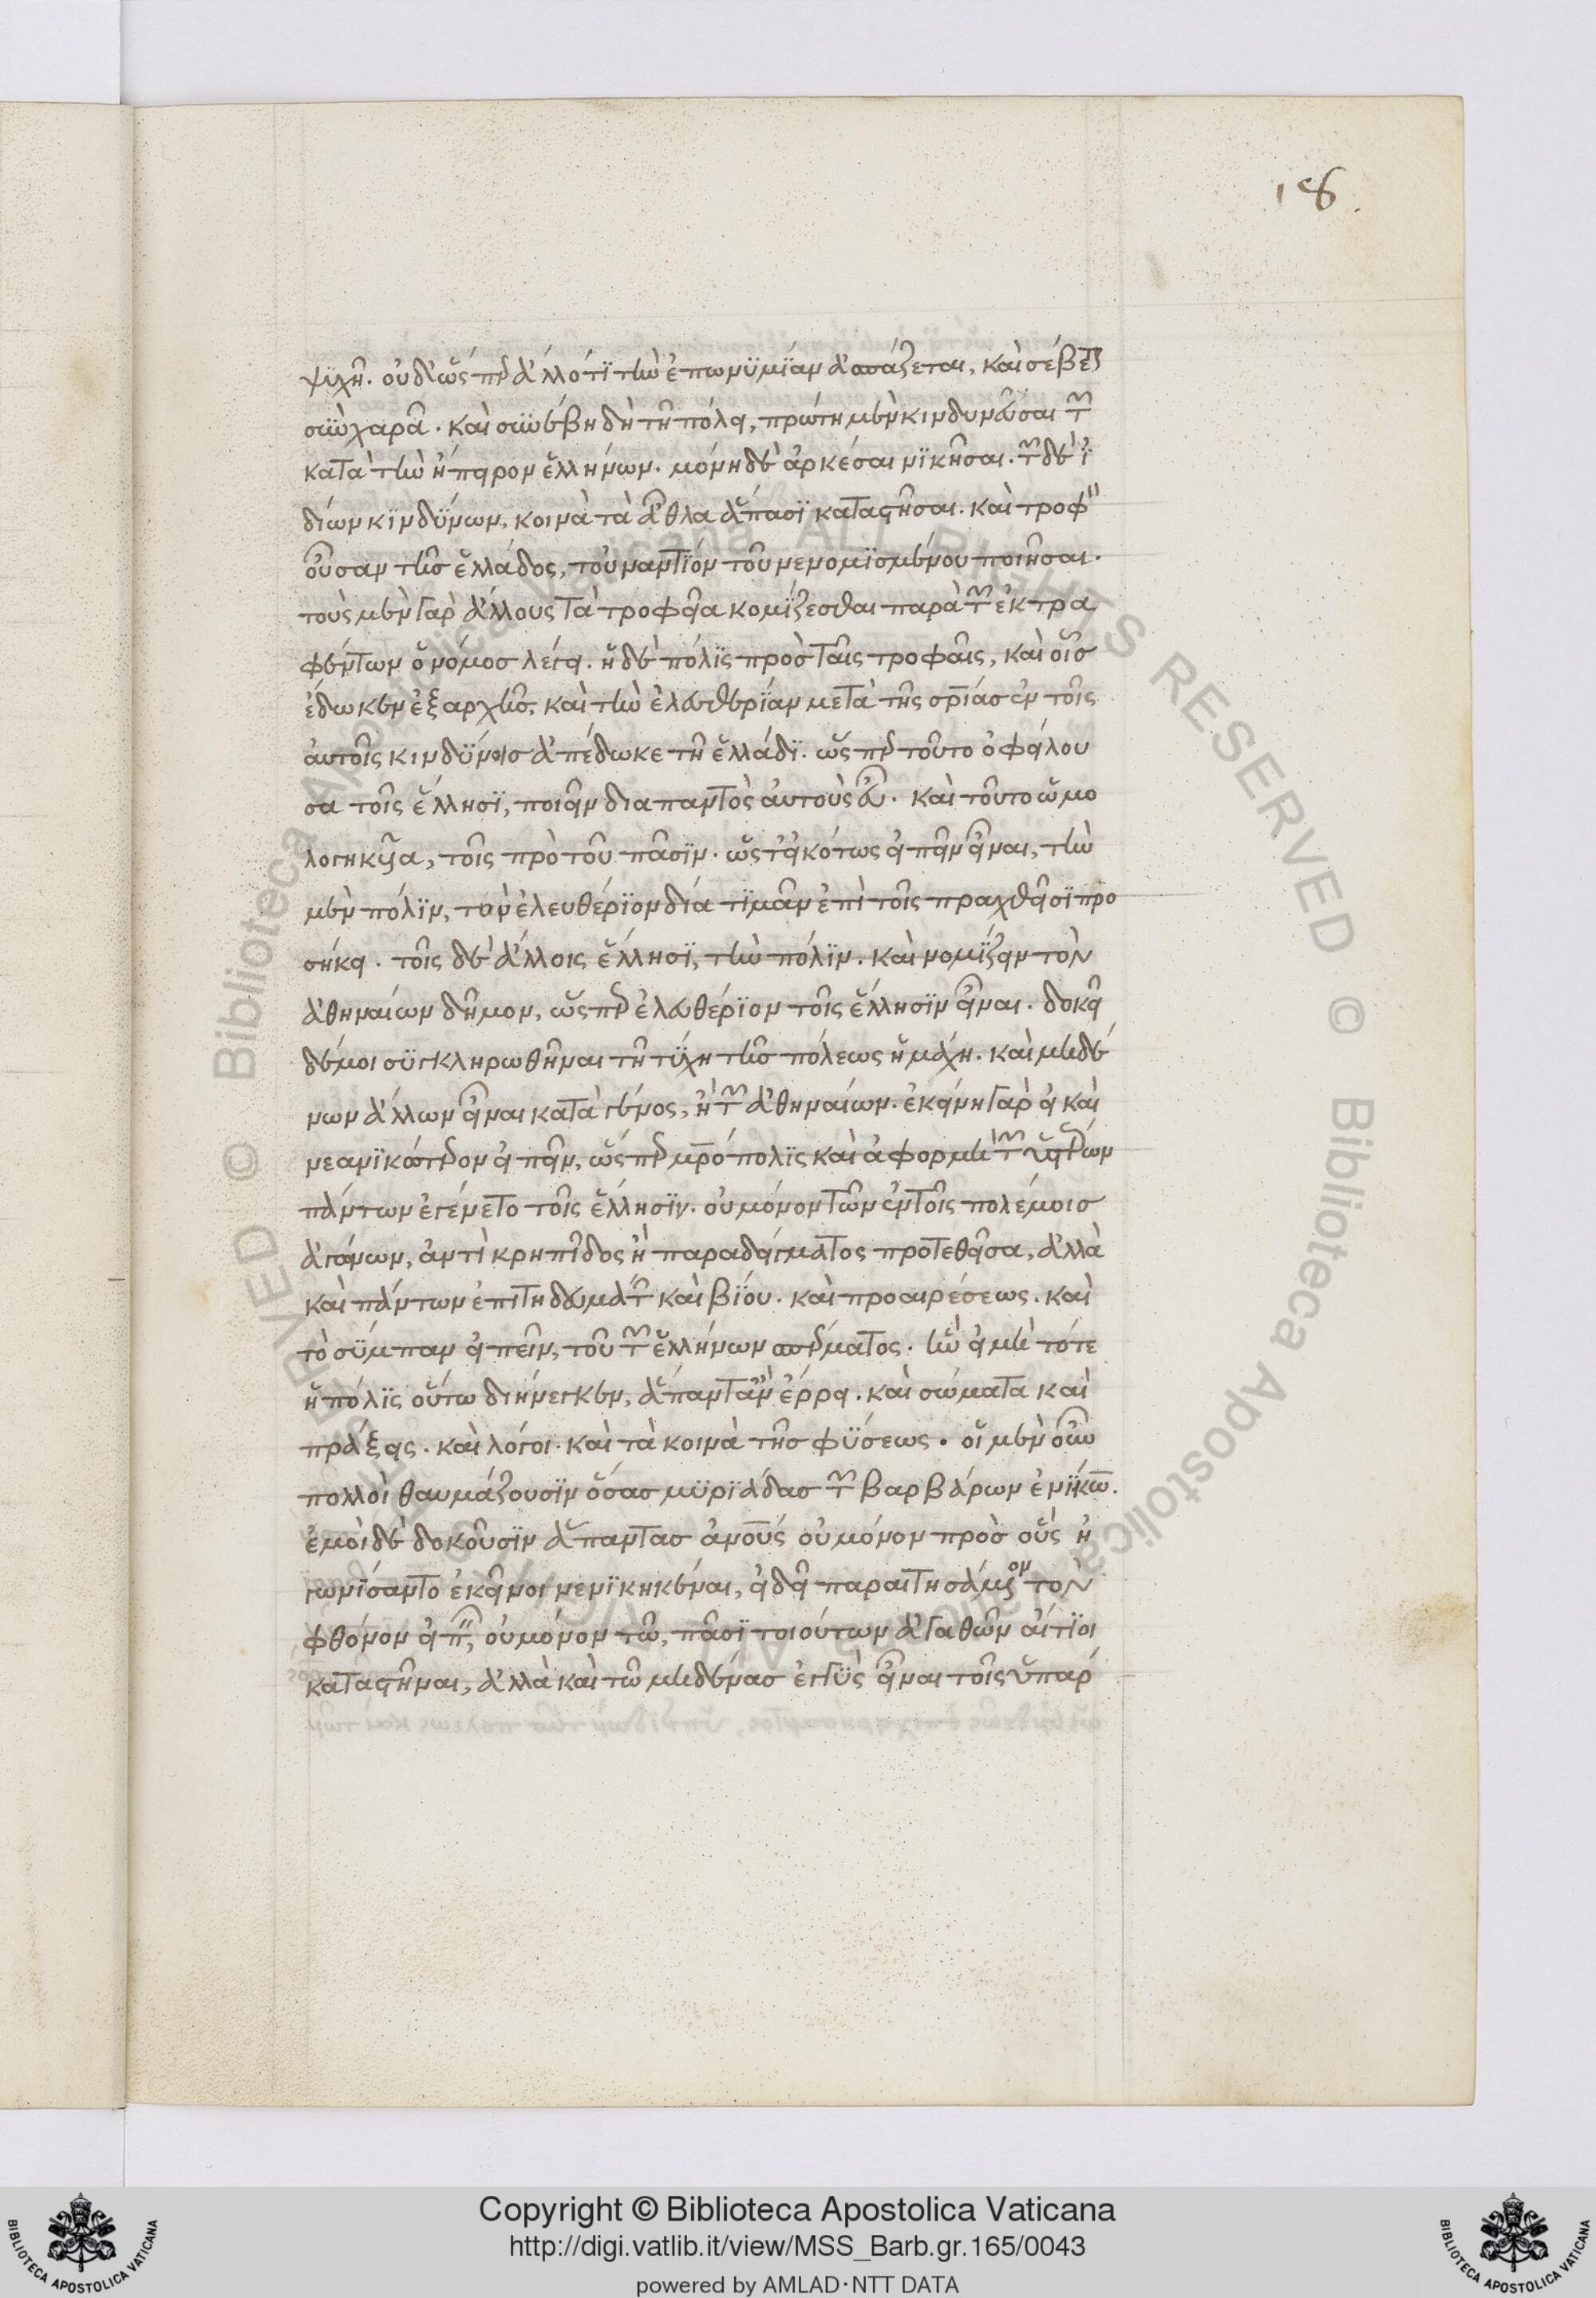 18.
ψϊχῆ. οὐδ' ὥσπερ ἄλλό τϊ τὴν ἐπωνϋμϊαν ἀσπάζεται, καὶ σέβεται
σὺν χαρᾶ. καὶ συνέβη δὴ τῆ πόλει, πρώτη μὲν κινδυνεῦσαι τῶν
κατὰ τὴν ἤπειρον ἑλλήνων. μόνη δὲ ἀρκέσαι νϊκῆσαι. τῶν δὲ ἰ
δίων κϊνδϋνων, κοινὰ τὰ ἆθλα ἅπασϊ καταστῆσαι. καὶ τροφὸν
οὖσαν τῆς ἑλλάδος, τοὐναντϊον τοῦ νενομϊσμένου ποιῆσαι.
τοὺς μὲν γὰρ ἄλλους τὰ τροφεῖα κομϊζεσθαι παρὰ τῶν ἐκτρα
φέντων ὁ νόμος λέγει. ἡ δὲ πόλϊς πρὸς ταῖς τροφαῖς, καὶ οἷς
ἔδωκεν ἐξαρχῆς, καὶ τὴν ἐλευθερϊαν μετὰ τῆς σωτηρίας ἐν τοῖς
αὐτοῖς κινδϋνοις ἀπέδωκε τῆ ἑλλάδϊ. ὥσπερ τοῦτο ὀφείλου
σα τοῖς ἕλλησϊ, ποιεῖν διαπαντὸς αὐτοὺς εὖ. καὶ τοῦτο ὡμο
λογηκυῖα, τοῖς πρὸ τοῦ πᾶσϊν. ὥστ' εἰκότως εἰπεῖν εἶναι, τὴν
μὲν πόλϊν, τὸν ἐλευθέρϊον δία τϊμᾶν ἐπὶ τοῖς πραχθεῖσϊ προ
σήκει. τοῖς δὲ ἄλλοις ἕλλησϊ, τὴν πόλϊν. καὶ νομϊζειν τὸν
ἀθηναίων δῆμον, ὥσπερ ἐλευθέρϊον τοῖς ἕλλησϊν εἶναι. δοκεῖ
δέ μοι σϋγκληρωθῆναι τῆ τϋχη τῆς πόλεως ἡ μάχη. καὶ μηδέ
νων ἄλλων εἶναι κατὰ γένος, ἢ τῶν ἀθηναίων. ἐκείνη γὰρ εἰ καὶ
νεανϊκώτερον εἰπεῖν, ὥσπερ μητρόπολϊς καὶ ἀφορμὴ τῶν ὑστέρων
πάντων ἐγένετο τοῖς ἕλλησϊν. οὐ μόνον τῶν ἐν τοῖς πολέμοις
ἀγώνων, ἀντὶ κρηπῖδος ἢ παραδείγματος προτεθεῖσα, ἀλλὰ
καὶ πάντων ἐπιτηδευμάτων καὶ βϊου. καὶ προαιρέσεως. καὶ
τὸ σϋμπαν εἰπεῖν, τοῦ τῶν ἑλλήνων σπέρματος. ὧν εἰ μὴ τότε
ἡ πόλϊς οὕτω διήνεγκεν, ἅπαντ' ἂν ἔρρει. καὶ σώματα καὶ
πράξεις. καὶ λόγοι. καὶ τὰ κοινὰ τῆς φϋσεως. οἱ μὲν οὖν
πολλοὶ θαυμάζουσϊν ὅσας μϋρϊάδας τῶν βαρβάρων ἐνϊκων.
ἐμοὶ δὲ δοκοῦσϊν ἅπαντας ἀνθρώπους οὐ μόνον πρὸς οὓς ἠ
γωνϊσαντο ἐκεῖνοι νενϊκηκέναι, εἰ δεῖ παραιτησάμενον τὸν
φθόνον εἰπεῖν, οὐ μόνον τῶ, πᾶσϊ τοιούτων ἀγαθῶν αἴτϊοι
καταστῆναι, ἀλλὰ καὶ τῶ μηδένας ἐγγϋς εἶναι τοῖς ὑπαρ
Copyright © Biblioteca Apostolica Vaticana
http://digi.vatlib.it/view/MSS_Barb.gr.165/0043
powered by AMLAD·NTT DATA